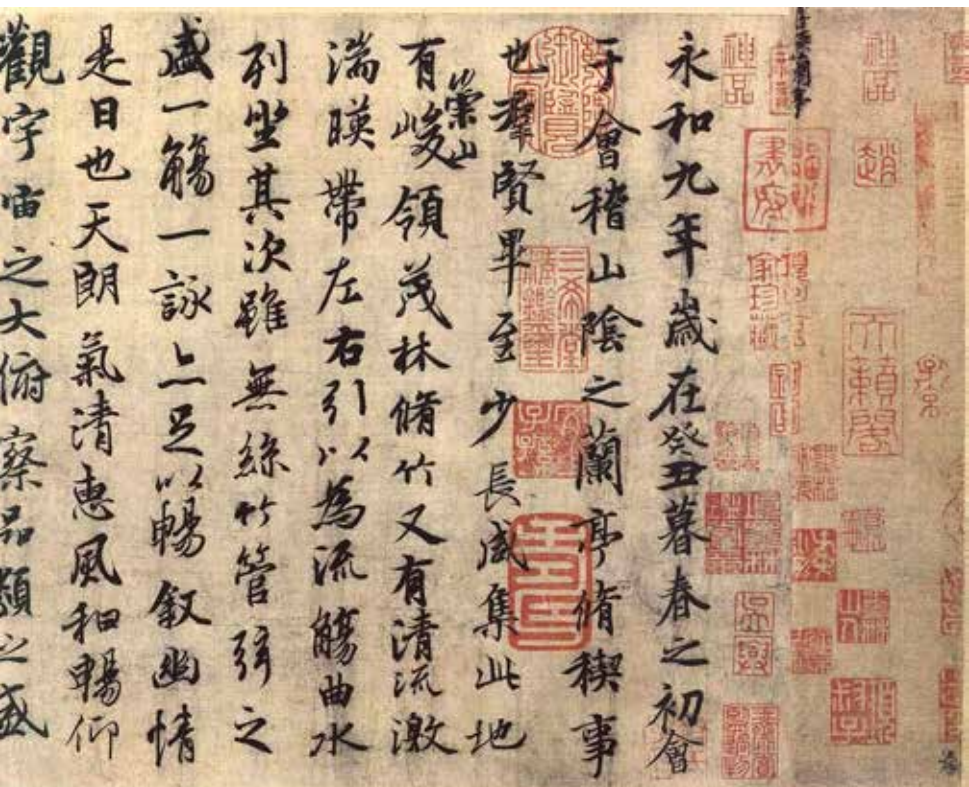 神品
天籟閣
神品
永和九年歲在癸丑暮春之初會
于會稽山陰之蘭亭脩稧事
也羣賢畢至少長咸集此地
有崇山峻領茂林脩竹又有清流激
湍暎帶左右引以為流觴曲水
列坐其次雖無絲竹管弦之
盛一觴一詠亦足以暢敘幽情
是日也天朗氣清惠風和暢仰
觀宇宙之大俯察品類之盛
三希堂精鑑璽
宜子孫